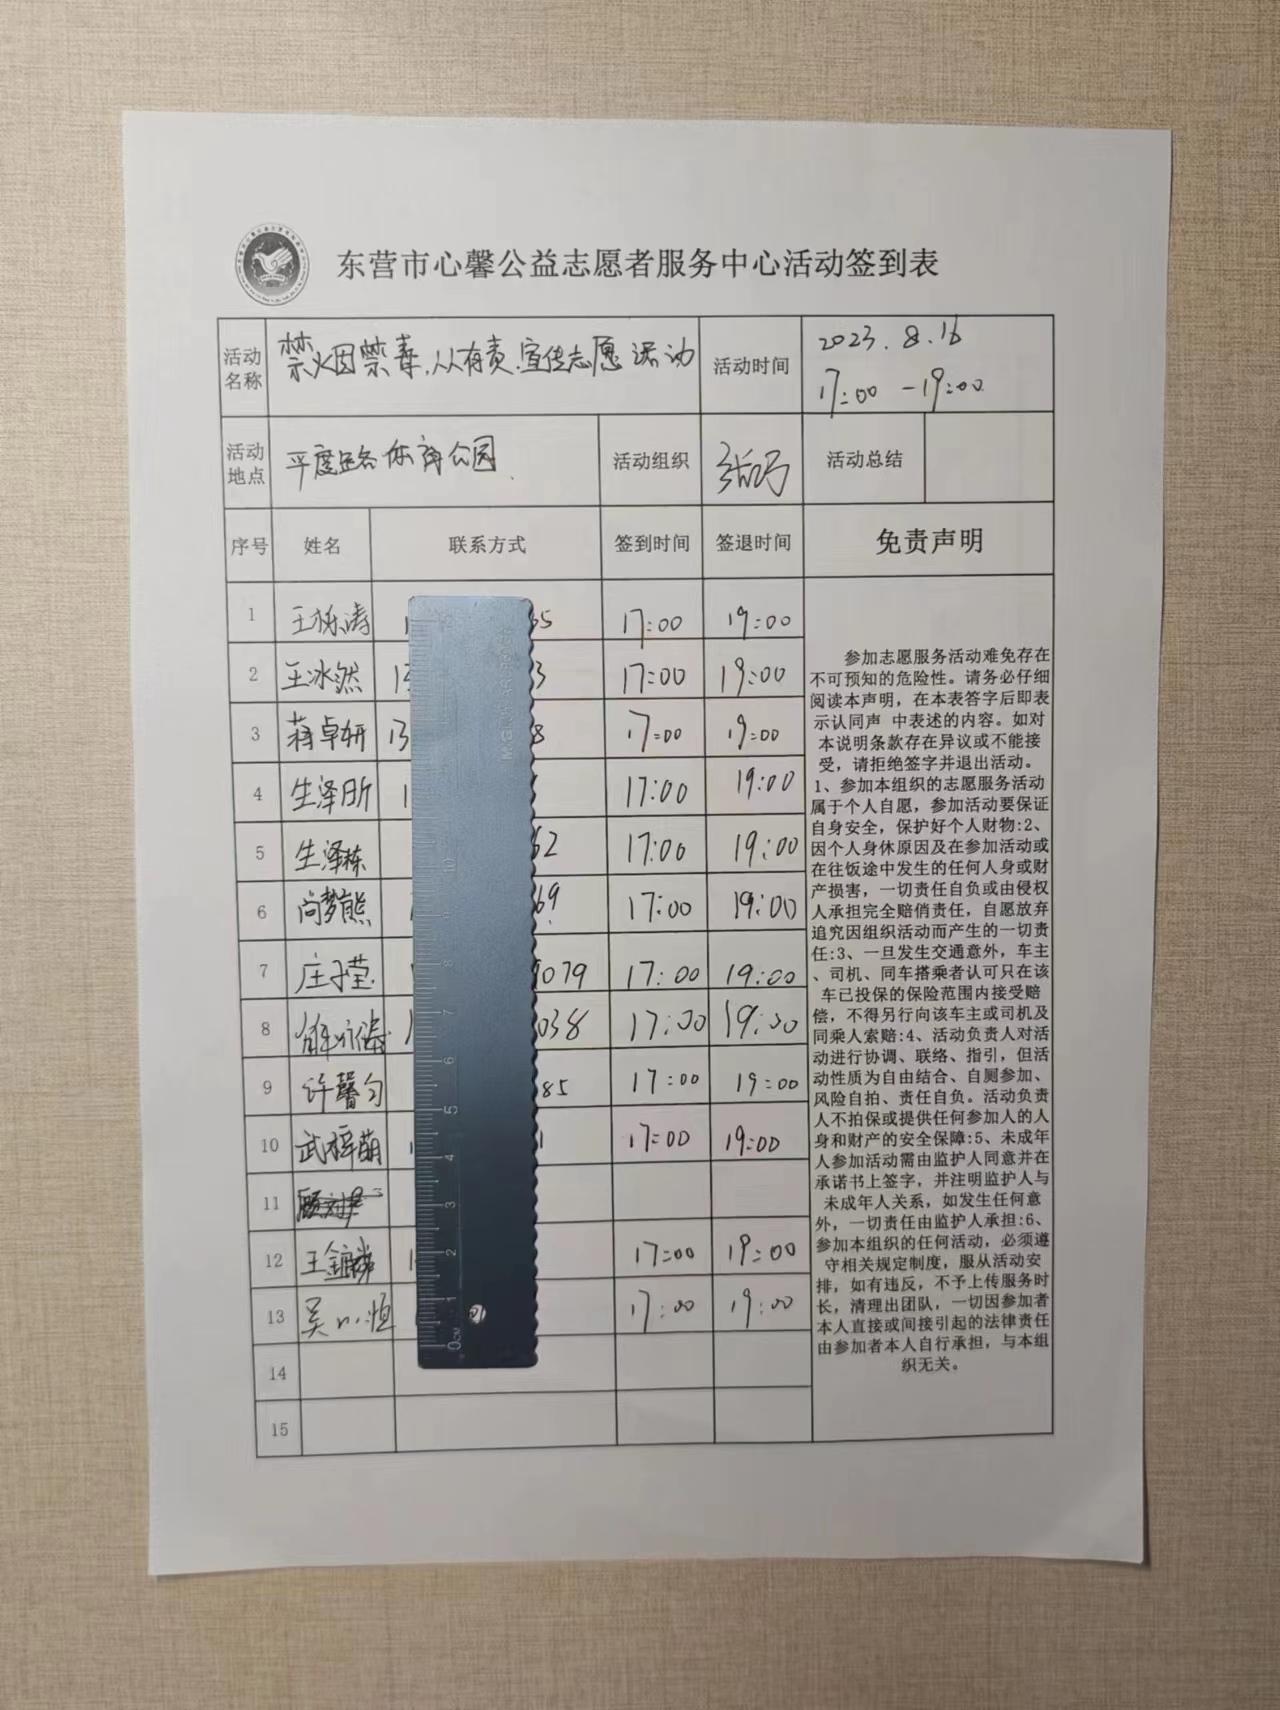 东营市心馨公益志愿者服务中心活动签到表
活动名称 禁烟禁毒,人人有责.宣传志愿活动 活动时间 2023.8.16
17:00 - 19:00
活动地点 平度路体育公园 活动组织 活动总结
序号 姓名 联系方式 签到时间 签退时间 免责声明
1 王栎涛 1 55 17:00 19:00
2 王冰然 3 17:00 19:00
3 蒋卓妍 13 8 17:00 19:00
4 生泽昕 1 17:00 19:00
5 生泽栋 62 17:00 19:00
6 尚梦熊 69 17:00 19:00
7 庄子莹 9079 17:00 19:00
8 038 17:00 19:00
9 许馨匀 85 17:00 19:00
10 武梓萌 1 17:00 19:00
11
12 王鑫 17:00 19:00
13 吴 恒 17:00 19:00
14
15
M&G
0 CM 1 2 3 4 5 6 7 8 9 10
参加志愿服务活动难免存在
不可预知的危险性。请务必仔细
阅读本声明，在本表答字后即表
示认同声 中表述的内容。如对
本说明条款存在异议或不能接
受，请拒绝签字并退出活动。
1、参加本组织的志愿服务活动
属于个人自愿，参加活动要保证
自身安全，保护好个人财物:2、
因个人身休原因及在参加活动或
在往饭途中发生的任何人身或财
产损害，一切责任自负或由侵权
人承担完全赔俏责任，自愿放弃
追究因组织活动而产生的一切责
任:3、一旦发生交通意外，车主
、司机、同车搭乘者认可只在该
车已投保的保险范围内接受赔
偿，不得另行向该车主或司机及
同乘人索赔:4、活动负责人对活
动进行协调、联络、指引，但活
动性质为自由结合、自厕参加、
风险自拍、责任自负。活动负责
人不拍保或提供任何参加人的人
身和财产的安全保障:5、未成年
人参加活动需由监护人同意并在
承诺书上签字，并注明监护人与
未成年人关系，如发生任何意
外，一切责任由监护人承担:6、
参加本组织的任何活动，必须遵
守相关规定制度，服从活动安
排，如有违反，不予上传服务时
长，清理出团队，一切因参加者
本人直接或间接引起的法律责任
由参加者本人自行承担，与本组
织无关。